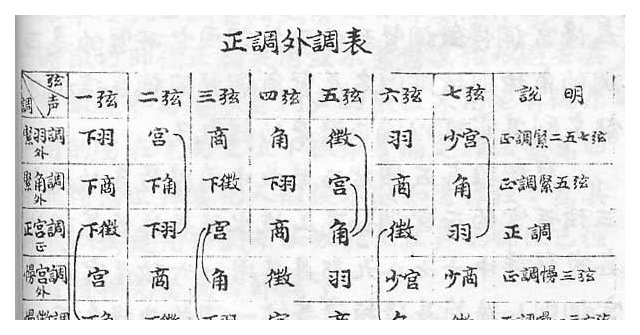 正調外調表
弦 声 調 一弦 二弦 三弦 四弦 五弦 六弦 七弦 説明
緊羽調外 下羽 宮 商 角 徴 羽 少宮 正調緊二五七弦
緊角調外 下商 下角 下徴 下羽 宮 商 角 正調緊五弦
正宮調正 下徴 下羽 宮 商 角 徴 羽 正調
慢宮調外 宮 商 角 徴 羽 少宮 少商 正調慢三弦